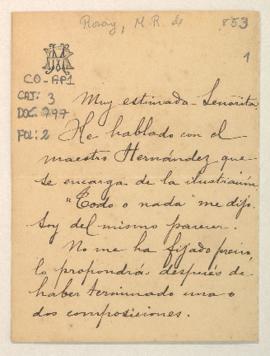 Rosay, M.R. de
853
1
CO-AP1
CAJ: 3
DOC: 797
FOL: 2
Muy estimada Señorita
He hablado con el
maestro Hernández que
se encarga de la ilustración
"Todo o nada" me dijo.
Soy del mismo parecer.
No me ha fijado precio,
lo propondrá después de
haber terminado una o
dos composiciones.